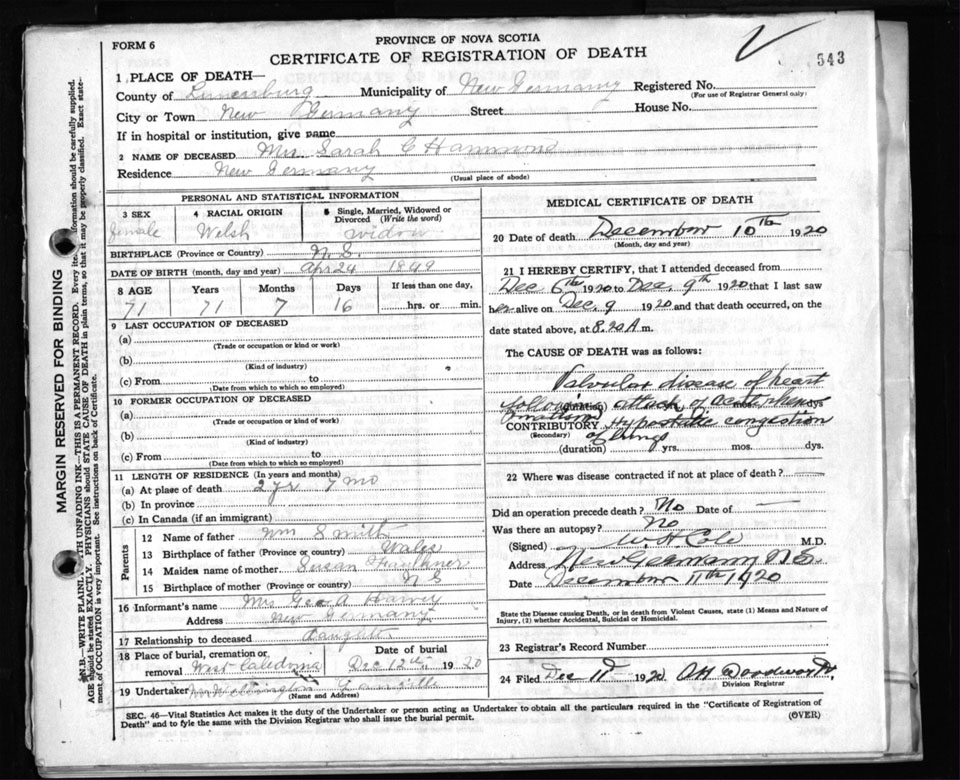 543
FORM 6
PROVINCE OF NOVA SCOTIA
CERTIFICATE OF REGISTRATION OF DEATH
1 PLACE OF DEATH—
County of Lunenburg Municipality of New Germany Registered No.
(For use of Registrar General only)
City or Town New Germany Street House No.
If in hospital or institution, give name
2 NAME OF DECEASED Mrs Sarah C Hammond
Residence New Germany
(Usual place of abode)
MARGIN RESERVED FOR BINDING
PERSONAL AND STATISTICAL INFORMATION
3 SEX 4 RACIAL ORIGIN 5 Single, Married, Widowed or Divorced (Write the word)
female Welsh widow
BIRTHPLACE (Province or Country) N.S.
DATE OF BIRTH (month, day and year) Apr 24 1849
8 AGE Years Months Days If less than one day,
71 71 7 16 hrs. or min.
9 LAST OCCUPATION OF DECEASED
(a)
(Trade or occupation or kind or work)
(b)
(Kind of industry)
(c) From to
(Date from which to which so employed)
10 FORMER OCCUPATION OF DECEASED
(a)
(Trade or occupation or kind of work)
(b)
(Kind of industry)
(c) From to
(Date from which to which so employed)
11 LENGTH OF RESIDENCE (In years and months)
(a) At place of death 2 yr 7 mo
(b) In province
(c) In Canada (if an immigrant)
Parents
12 Name of father Wm Smith
13 Birthplace of father (Province or country) Wales
14 Maiden name of mother Susan Faulkner
15 Birthplace of mother (Province or country) N S
16 Informant's name Mrs Geo A Harvey
Address New Germany
17 Relationship to deceased daughter
18 Place of burial, cremation or removal West Caledonia Date of burial Dec 12th 1920
19 Undertaker
(Name and Address)
MEDICAL CERTIFICATE OF DEATH
20 Date of death December 10th 1920
(Month, day and year)
21 I HEREBY CERTIFY, that I attended deceased from
Dec 6th 1920 to Dec. 9th 1920 that I last saw
her alive on Dec. 9 1920 and that death occurred, on the
date stated above, at 8.20 A m.
The CAUSE OF DEATH was as follows:
Valvular disease of heart
following attack of acute rheumatism
(duration) mos. days
CONTRIBUTORY Hypostatic congestion
(Secondary) of lungs
(duration) yrs. mos. dys.
22 Where was disease contracted if not at place of death?
Did an operation precede death? No Date of
Was there an autopsy? No
(Signed) W H Cole M.D.
Address New Germany N.S.
Date December 11th 1920
State the Disease causing Death, or in death from Violent Causes, state (1) Means and Nature of
Injury, (2) whether Accidental, Suicidal or Homicidal.
23 Registrar's Record Number
24 Filed Dec 11 1920
Division Registrar
SEC. 46—Vital Statistics Act makes it the duty of the Undertaker or person acting as Undertaker to obtain all the particulars required in the "Certificate of Registration of
Death" and to fyle the same with the Division Registrar who shall issue the burial permit.
(OVER)